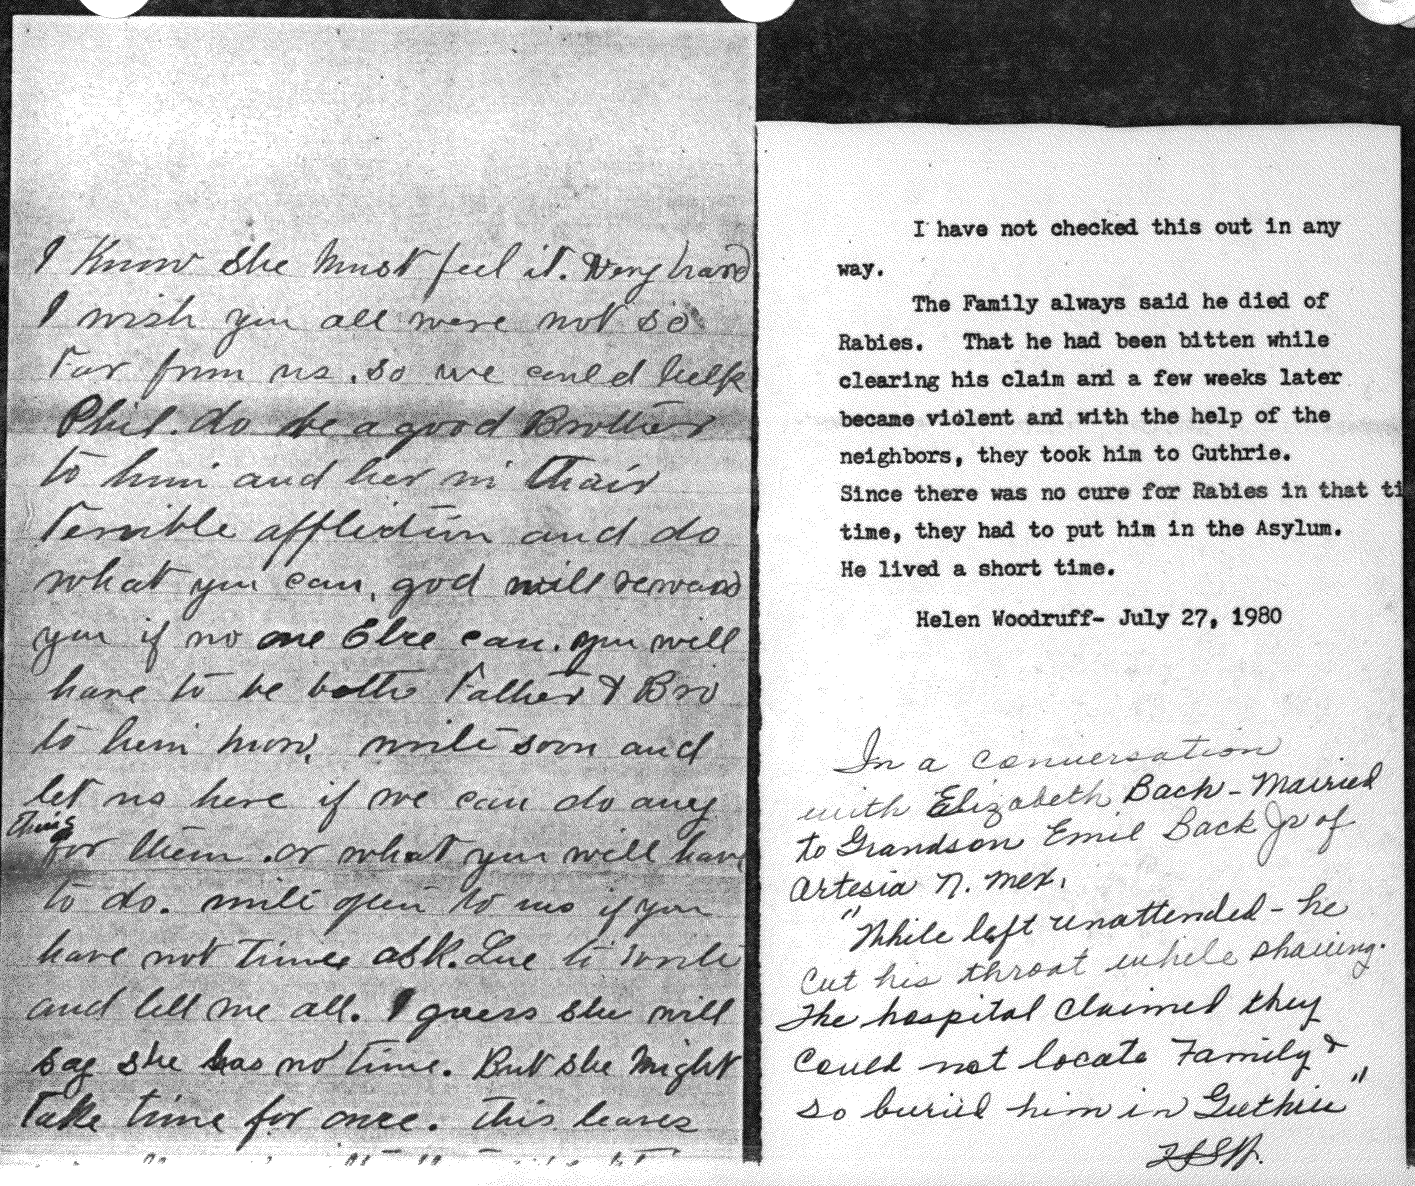 I Know she must feel it. very hard
I wish you all were not so
Far from us. so we could help
Phil. do be a good Brother
to him and her in thair
Terrible afflection and do
what you can. god will reward
you if no one Else can. you will
have to be bothe Father & Bro
to him now. write soon and
let us here if we can do any
thing
for them. or what you will have
to do. write to us if you
have not time ask. Lue to write
and tell me all. I guess she will
say she has no time. But she Might
Take time for once. this leaves
I have not checked this out in any
way.
The Family always said he died of
Rabies. That he had been bitten while
clearing his claim and a few weeks later
became violent and with the help of the
neighbors, they took him to Guthrie.
Since there was no cure for Rabies in that ti
time, they had to put him in the Asylum.
He lived a short time.
Helen Woodruff- July 27, 1980
In a conversation
with Elizabeth Back - Mairied
to Grandson Emil Back Jr of
Artesia N. Mex.
"While left unattended - he
cut his throat while shaving.
The hospital claimed they
could not locate Family &
so buried him in Guthrie"